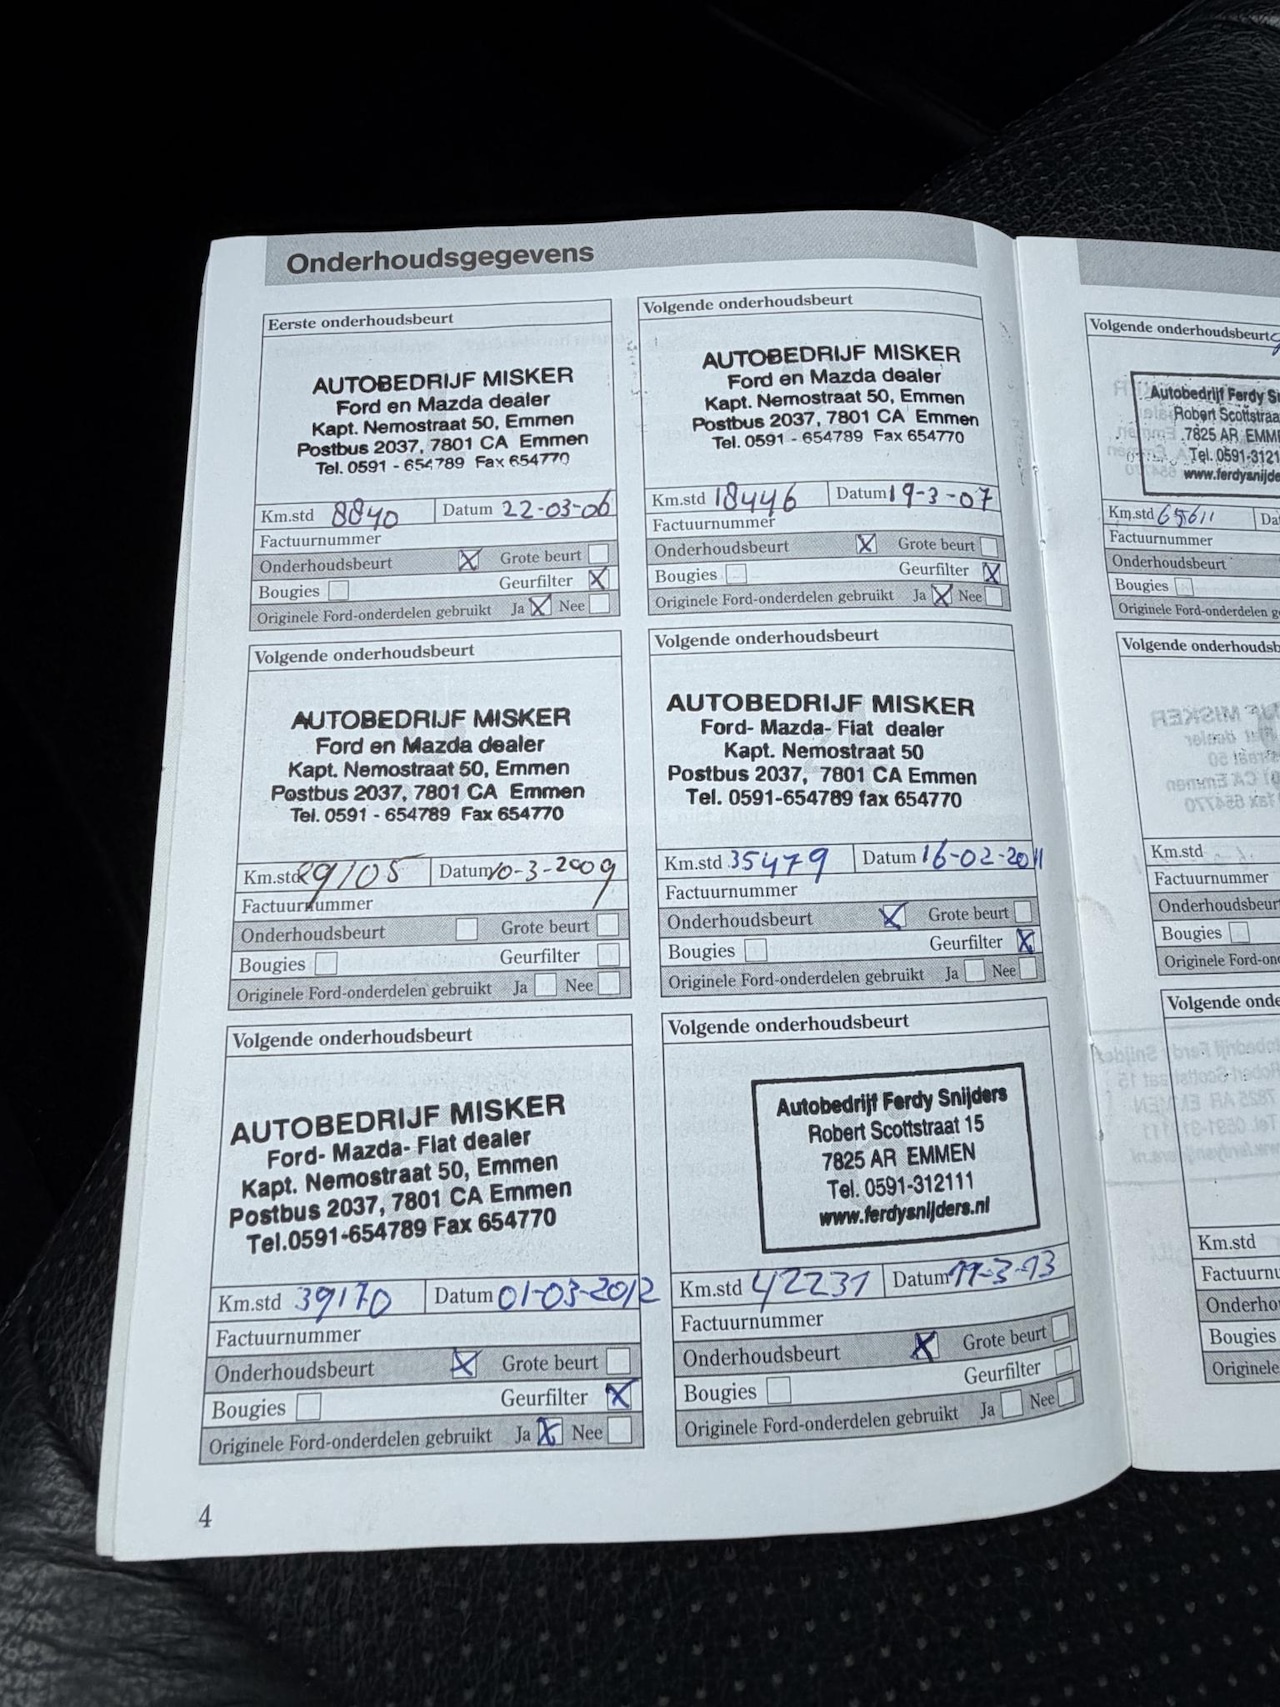 Onderhoudsgegevens
Eerste onderhoudsbeurt
AUTOBEDRIJF MISKER
Ford en Mazda dealer
Kapt. Nemostraat 50, Emmen
Postbus 2037, 7801 CA Emmen
Tel. 0591 - 654789 Fax 654770
Km.std 8840 Datum 22-03-06
Factuurnummer
Onderhoudsbeurt Grote beurt
Bougies Geurfilter
Originele Ford-onderdelen gebruikt Ja Nee
Volgende onderhoudsbeurt
AUTOBEDRIJF MISKER
Ford en Mazda dealer
Kapt. Nemostraat 50, Emmen
Postbus 2037, 7801 CA Emmen
Tel. 0591 - 654789 Fax 654770
Km.std 18446 Datum 19-3-07
Factuurnummer
Onderhoudsbeurt Grote beurt
Bougies Geurfilter
Originele Ford-onderdelen gebruikt Ja Nee
Volgende onderhoudsbeurt
AUTOBEDRIJF MISKER
Ford en Mazda dealer
Kapt. Nemostraat 50, Emmen
Postbus 2037, 7801 CA Emmen
Tel. 0591 - 654789 Fax 654770
Km.std 29105 Datum 10-3-2009
Factuurnummer
Onderhoudsbeurt Grote beurt
Bougies Geurfilter
Originele Ford-onderdelen gebruikt Ja Nee
Volgende onderhoudsbeurt
AUTOBEDRIJF MISKER
Ford- Mazda- Fiat dealer
Kapt. Nemostraat 50
Postbus 2037, 7801 CA Emmen
Tel. 0591-654789 fax 654770
Km.std 35479 Datum 16-02-2011
Factuurnummer
Onderhoudsbeurt Grote beurt
Bougies Geurfilter
Originele Ford-onderdelen gebruikt Ja Nee
Volgende onderhoudsbeurt
AUTOBEDRIJF MISKER
Ford- Mazda- Fiat dealer
Kapt. Nemostraat 50, Emmen
Postbus 2037, 7801 CA Emmen
Tel.0591-654789 Fax 654770
Km.std 39170 Datum 01-03-2012
Factuurnummer
Onderhoudsbeurt Grote beurt
Bougies Geurfilter
Originele Ford-onderdelen gebruikt Ja Nee
Volgende onderhoudsbeurt
Autobedrijf Ferdy Snijders
Robert Scottstraat 15
7825 AR EMMEN
Tel. 0591-312111
www.ferdysnijders.nl
Km.std 42231 Datum 11-3-13
Factuurnummer
Onderhoudsbeurt Grote beurt
Bougies Geurfilter
Originele Ford-onderdelen gebruikt Ja Nee
4
Volgende onderhoudsbeurt
Autobedrijf Ferdy
Robert Scottstraa
7825 AR EMM
Tel. 0591-3121
www.ferdysnijde
Km.std 65611
Factuurnummer
Onderhoudsbeurt
Bougies
Originele Ford-onderdelen
Volgende onderhoudsb
Km.std
Factuurnummer
Onderhoudsbeur
Bougies
Originele Ford-on
Volgende onde
Km.std
Factuurnu
Onderho
Bougies
Originele